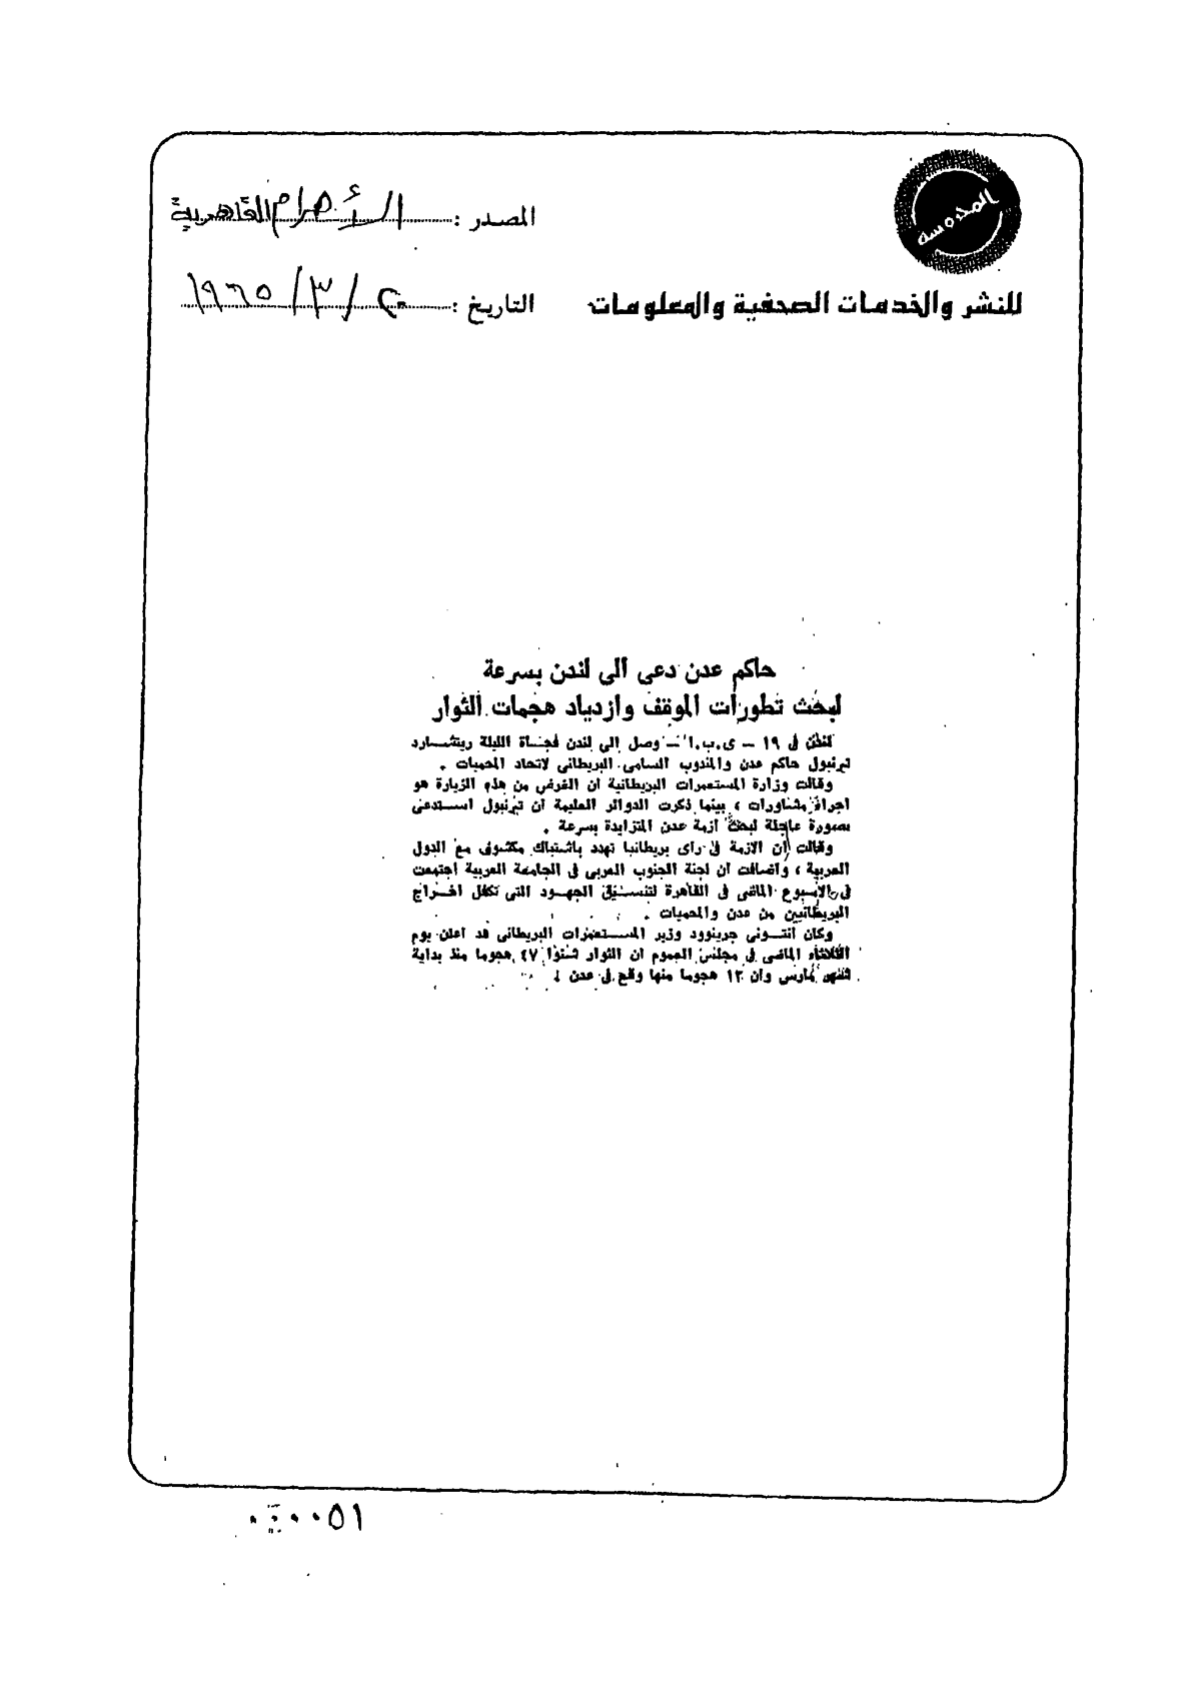 المحروسة
للنشر والخدمات الصحفية والمعلومات
المصدر : الأهرام القاهرية
التاريخ : ٢٠ / ٣ / ١٩٦٥
حاكم عدن دعى الى لندن بسرعة
لبحث تطورات الموقف وازدياد هجمات الثوار
لندن فى ١٩ – ى.ب.ا – وصل إلى لندن فجأة الليلة ريتشارد
تيرنبول حاكم عدن والمندوب السامى البريطانى لاتحاد المحميات .
وقالت وزارة المستعمرات البريطانية ان الغرض من هذه الزيارة هو
اجراء مشاورات ، بينما ذكرت الدوائر العليمة ان تيرنبول استدعى
بصورة عاجلة لبحث ازمة عدن المتزايدة بسرعة .
وقالت إن الازمة فى راى بريطانيا تهدد باشتباك مكشوف مع الدول
العربية ، واضافت ان لجنة الجنوب العربى فى الجامعة العربية اجتمعت
فى الاسبوع الماضى فى القاهرة لتنسيق الجهود التى تكفل اخراج
البريطانيين من عدن والمحميات .
وكان انتونى جرينوود وزير المستعمرات البريطانى قد اعلن يوم
الثلاثاء الماضى فى مجلس العموم ان الثوار شنوا ٤٧ هجوما منذ بداية
شهر مارس وان ١٢ هجوما منها وقع فى عدن !
٠٠٥١